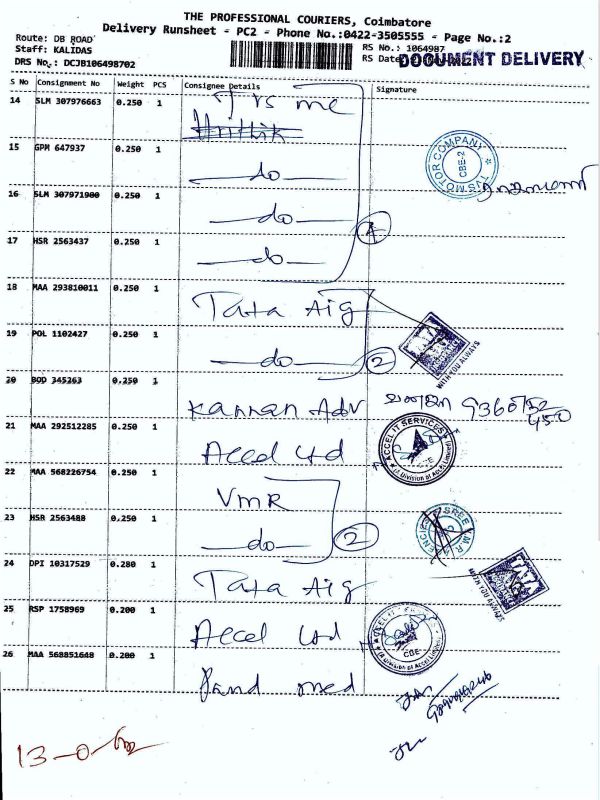 THE PROFESSIONAL COURIERS, Coimbatore
Delivery Runsheet - PC2 - Phone No.:0422-3505555 - Page No.:2
Route: DB ROAD
Staff: KALIDAS
DRS No.: DCJB106498702
RS No.: 1064987
RS Date
DOCUMENT DELIVERY
S No Consignment No Weight PCS Consignee Details Signature
14 SLM 307976663 0.250 1
15 GPM 647937 0.250 1 do
TVS MOTOR COMPANY CBE-2
16 SLM 307971900 0.250 1 do
17 HSR 2563437 0.250 1 do
18 MAA 293810011 0.250 1 Tata Aig
19 POL 1102427 0.250 1 do 2
WITH YOU ALWAYS
20 BOD 345263 0.250 1 Kannan Adv
21 MAA 292512285 0.250 1 Accel Ltd
ACCEL IT SERVICES
(A Division of Accel Limited)
22 MAA 568226754 0.250 1 VMR
23 HSR 2563488 0.250 1 do 2
24 DPI 10317529 0.280 1 Tata Aig
WITH YOU ALWAYS
25 RSP 1758969 0.200 1 Accel Ltd
26 MAA 568851648 0.200 1